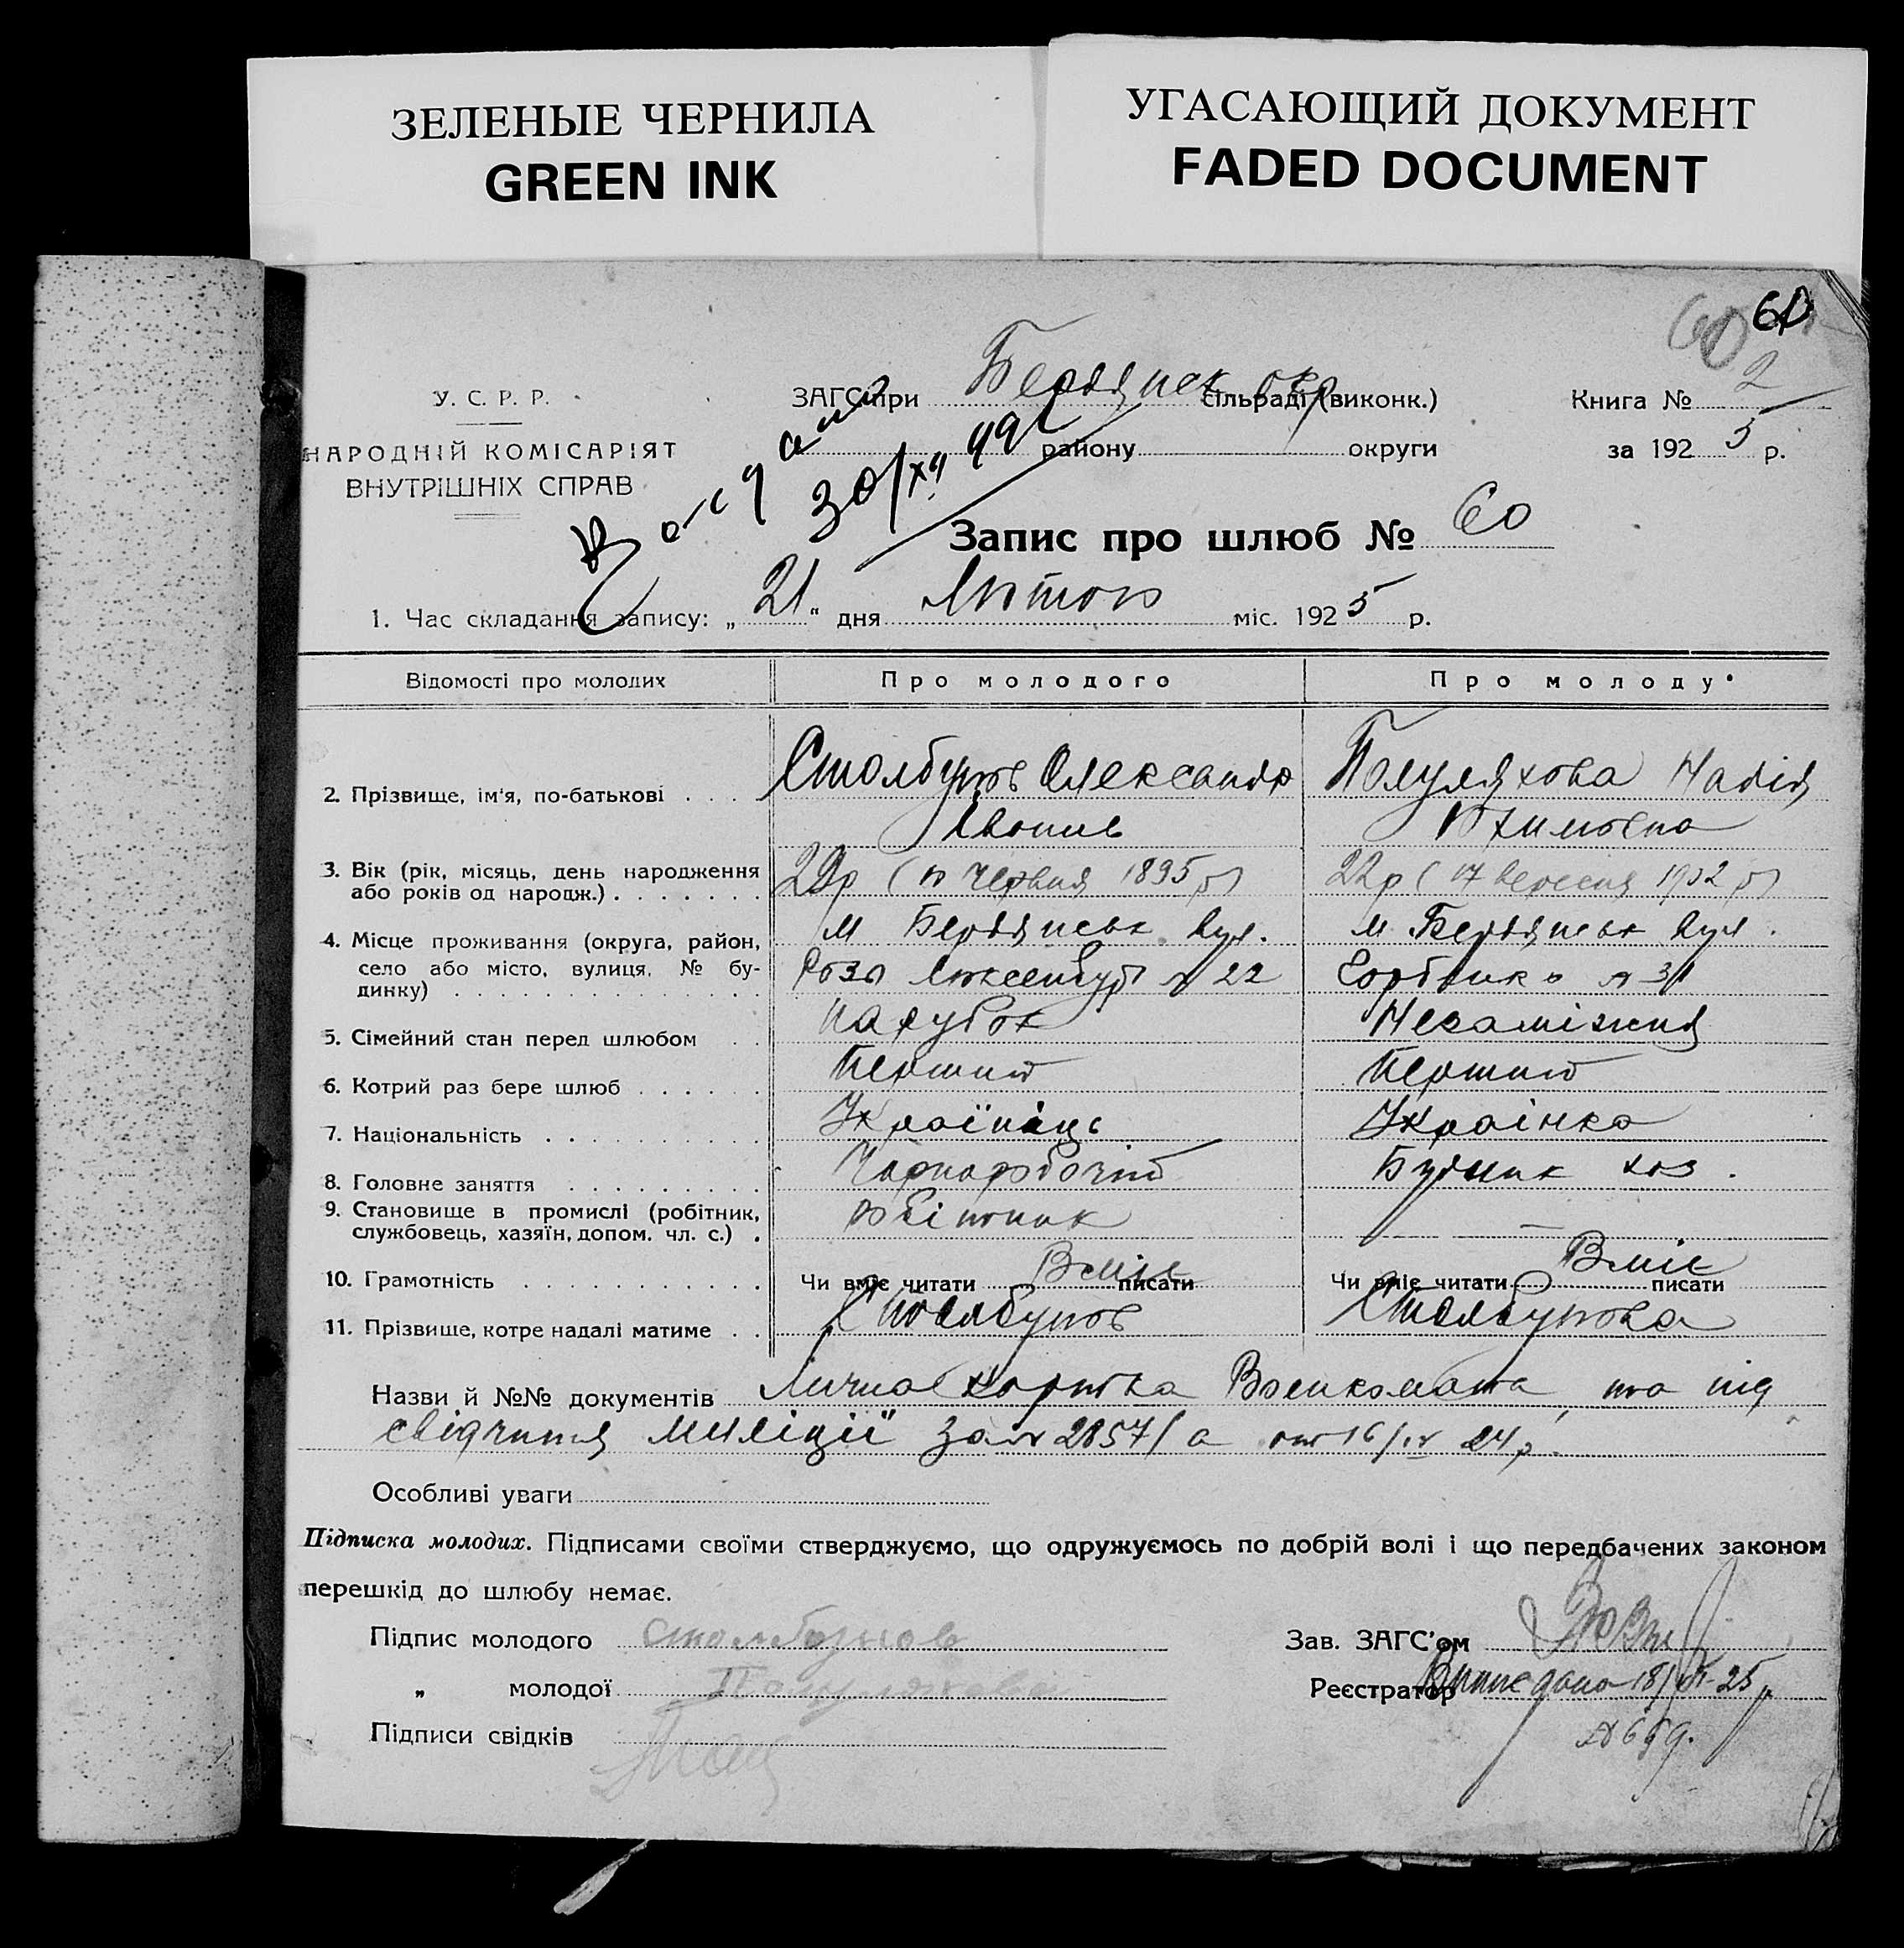 ЗЕЛЕНЫЕ ЧЕРНИЛА
GREEN INK
УГАСАЮЩИЙ ДОКУМЕНТ
FADED DOCUMENT
60 60
У. С. Р. Р.
НАРОДНІЙ КОМІСАРІЯТ
ВНУТРІШНІХ СПРАВ
ЗАГС при Бердянск окр сільраді (виконк.)
району округи
Книга № 2
за 1925 р.
30/XII
Запис про шлюб № 60
1. Час складання запису: „21“ дня Лютого міс. 1925 р.
Відомості про молодих Про молодого Про молоду
2. Прізвище, ім'я, по-батькові . . . Столбунов Олександр Полуляхова Надія
3. Вік (рік, місяць, день народження 29р ( червня 1895 р) 22р (17 вересня 1902 р)
або років од народж.) . . . . . . .
4. Місце проживання (округа, район, м Бердянськ вул. м Бердянськ вул.
село або місто, вулиця, № бу- Рози Люксембург № 22 № 31
динку) . . . . . . . . . . . . .
5. Сімейний стан перед шлюбом . . Парубок Незаміжня
6. Котрий раз бере шлюб . . . . . . Перший Перший
7. Національність . . . . . . . . . . Українець Українка
8. Головне заняття . . . . . . . . . Чорноробочий
9. Становище в промислі (робітник, робітник —
службовець, хазяїн, допом. чл. с.) .
10. Грамотність . . . . . . . . . . . Чи вміє читати Вміє писати Чи вміє читати Вміє писати
11. Прізвище, котре надалі матиме . . Столбунов Столбунова
Назви й №№ документів Лична картка Военкомата, та під
свідчення міліції за № 2857/а от 16/IV 24р.
Особливі уваги
Підписка молодих. Підписами своїми стверджуємо, що одружуємось по добрій волі і що передбачених законом
перешкід до шлюбу немає.
Підпис молодого Столбунов
Зав. ЗАГС'ом
„ молодої Полулякова
Реєстратор
Підписи свідків